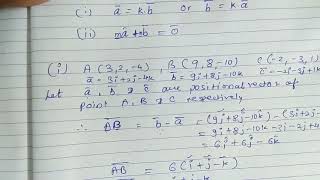 (i) a̅ = k.b̅ or b̅ = k.a̅
(ii) ma̅ + nb̅ = 0̅
(i) A(3,2,-4), B(9,8,-10) C(-2,-3,1)
a̅ = 3i+2j-4k b̅ = 9i+8j-10k c̅ = -2i-3j+k
Let a̅, b̅ & c̅ are positional vector of
point A, B & C respectively
∴ A̅B̅ = b̅ - a̅ = (9i+8j-10k) - (3i+2j-
= 9i+8j-10k-3i-2j+4
= 6i+6j-6k
A̅B̅ = 6(i+j-k)